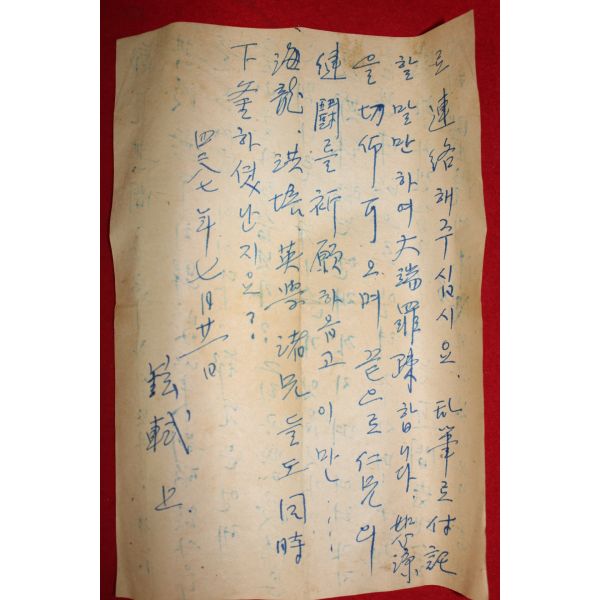 로 連絡해 주십시요. 乱筆로 付託
할 말만 하여 大端 罪悚합니다.
을 切仰 하오며 끝으로 仁兄의
健鬪를 祈願하옵고 이만...
海龍. 洪培. 英學 諸兄들도 同時
下釜하였난지요?
四二八七年 七月 廿一日
軾 上.